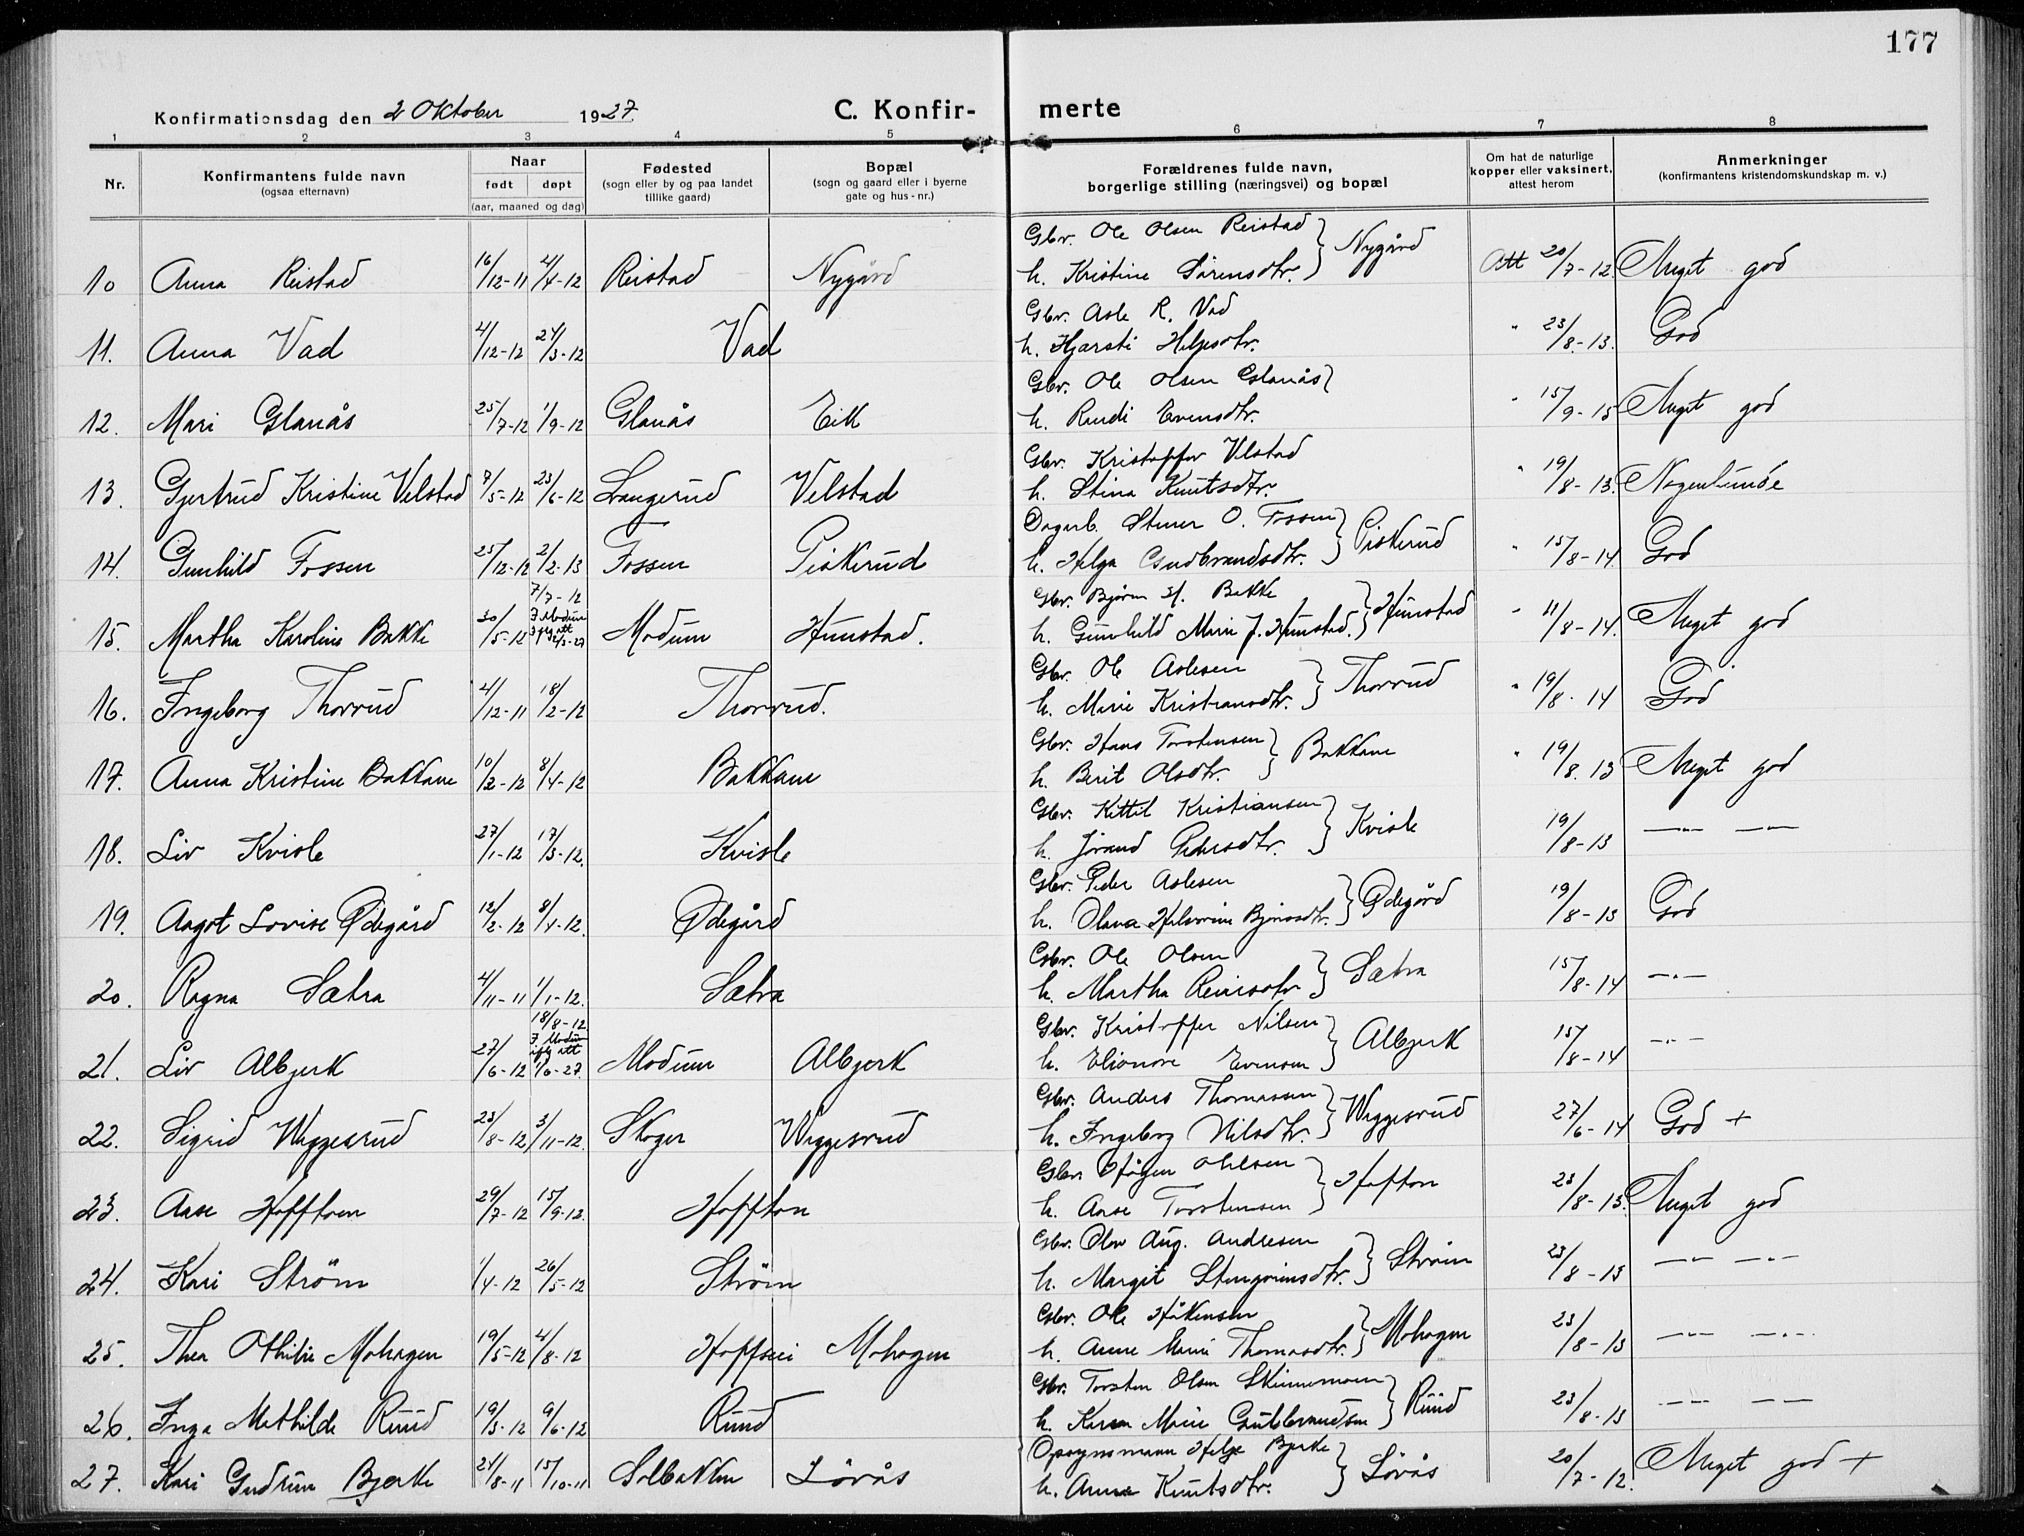 177
Konfirmationsdag den 2 Oktober 1927.
C. Konfir- merte
1 2 3 4 5 6 7 8
Nr.
Konfirmantens fulde navn
(ogsaa efternavn)
Naar
født døpt
(aar, maaned og dag)
Fødested
(sogn eller by og paa landet
tillike gaard)
Bopæl
(sogn og gaard eller i byerne
gate og hus-nr.)
Forældrenes fulde navn,
borgerlige stilling (næringsvei) og bopæl
Om hat de naturlige
kopper eller vaksinert,
attest herom
Anmerkninger
(konfirmantens kristendomskundskap m. v.)
Gbr. Ole Olsen Reistad
10 Anna Reistad 16/12-11 4/4-12 Reistad Nygård h. Kristine Sörensdtr. } Nygård Att 20/7-12 Meget god
Gbr. Asle R. Vad
11. Anna Vad 4/12-12 24/3-12 Vad h. Kjersti Helgesdtr. " 23/8-13. God
Gbr. Ole Olsen Glanås }
12. Mari Glanås 25/7-12 1/9-12 Glanås Eik h. Randi Evensdtr. " 15/9-15 Meget god
Gbr. Kristoffer Velstad
13. Gjertrud Kristine Velstad 7/5-12 23/6-12 Langerud Velstad h. Stina Knutsdtr. " 19/8-13. Nogenlunde
Dagarb. Stener O. Fossen
14. Gunhild Fossen 25/12-12 2/2-13 Fossen Piskerud h. Helga Gudbrandsdtr. } Piskerud " 15/8-14 God
7/7-12
Gbr. Björn H. Bakke
15. Martha Karoline Bakke 30/5-12 I Modum Modum Hunstad. h. Gunhild Marie J. Hunstad. } Hunstad " 11/8-14. Meget god
Gbr. Ole Aslesen
16. Ingeborg Thorrud 4/12-11 18/2-12 Thorrud. h. Marie Kristiansdtr. } Thorrud " 19/8-14 God
Gbr. Hans Torstensen
17. Anna Kristine Bakkane 10/2-12 8/4-12 Bakkane h. Berit Olsdtr. } Bakkane " 19/8.13 Meget god
Gbr. Kittil Kristiansen
18. Liv Kvisle 27/1-12 17/3-12. Kvisle h. Jörand Pedersdtr. } Kvisle 19/8-13 —"— —"—
Gbr. Peder Aslesen
19. Aagot Lovise Ødegård 12/2-12 8/4-12. Ødegård h. Olava Helvrine Björnsdtr. } Ødegård 19/8-13 God
Gbr. Ole Olsen
20. Ragna Sætra 4/11-11 1/1-12. Sætra h. Martha Reiersdtr } Sætra 15/8-14 —"—
18/8-12
Gbr. Kristoffer Nilsen
21. Liv Albjerk 27/6-12 I Modum iflg att 1/6-27. Modum Albjerk h. Elionore Evensen } Albjerk 15/8-14 —"—
Gbr. Anders Thomassen
22. Sigrid Wæggesrud 23/8-12 3/11-12. Skoger Wæggesrud h. Ingeborg Nilsdtr. } Wæggesrud 27/6-14 God +
Gbr. Hågen Ohlsen
23. Aase Hofftoen 29/7-12 15/9-12. Hoffton h. Aase Torstensen } Hofton 23/8-13. Meget god
Gbr. Olav Aug. Andresen
24. Kari Ström 1/4-12 26/5-12 Ström h. Margit Stengrimsdtr. } Ström 23/8-13 —"— —"—
Gbr. Ole Håkensen
25. Thea Othilie Mohagen 19/5-12 4/8-12 Hoffsei Mohagen h. Anne Marie Thomasdtr. } Mohagen 23/8-13 —"— —"—
Gbr. Torsten Olsen Skinnemoen
26. Inga Mathilde Ruud 19/3-12 9/6-12 Ruud h. Karen Marie Gulbrandsen } Ruud 23/8-13 —"— —"—
Opsynsmann Helge Bjerke
27. Kari Gudrun Bjerke 24/8-11 15/10-11 Solbakken Lövås h. Anne Knutsdtr. } Lövås 20/7-12. Meget god +